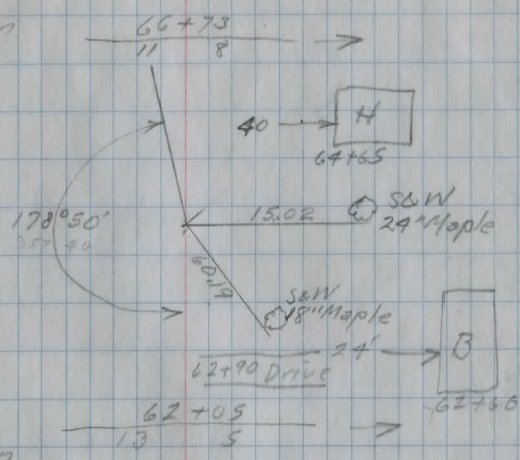 66+73
11 8
40 H
64+65
178°50'
357 40
15.02
S&W
24" Maple
60.19
S&W
18" Maple
24' B
62+90 Drive
62+60
62+05
13 5